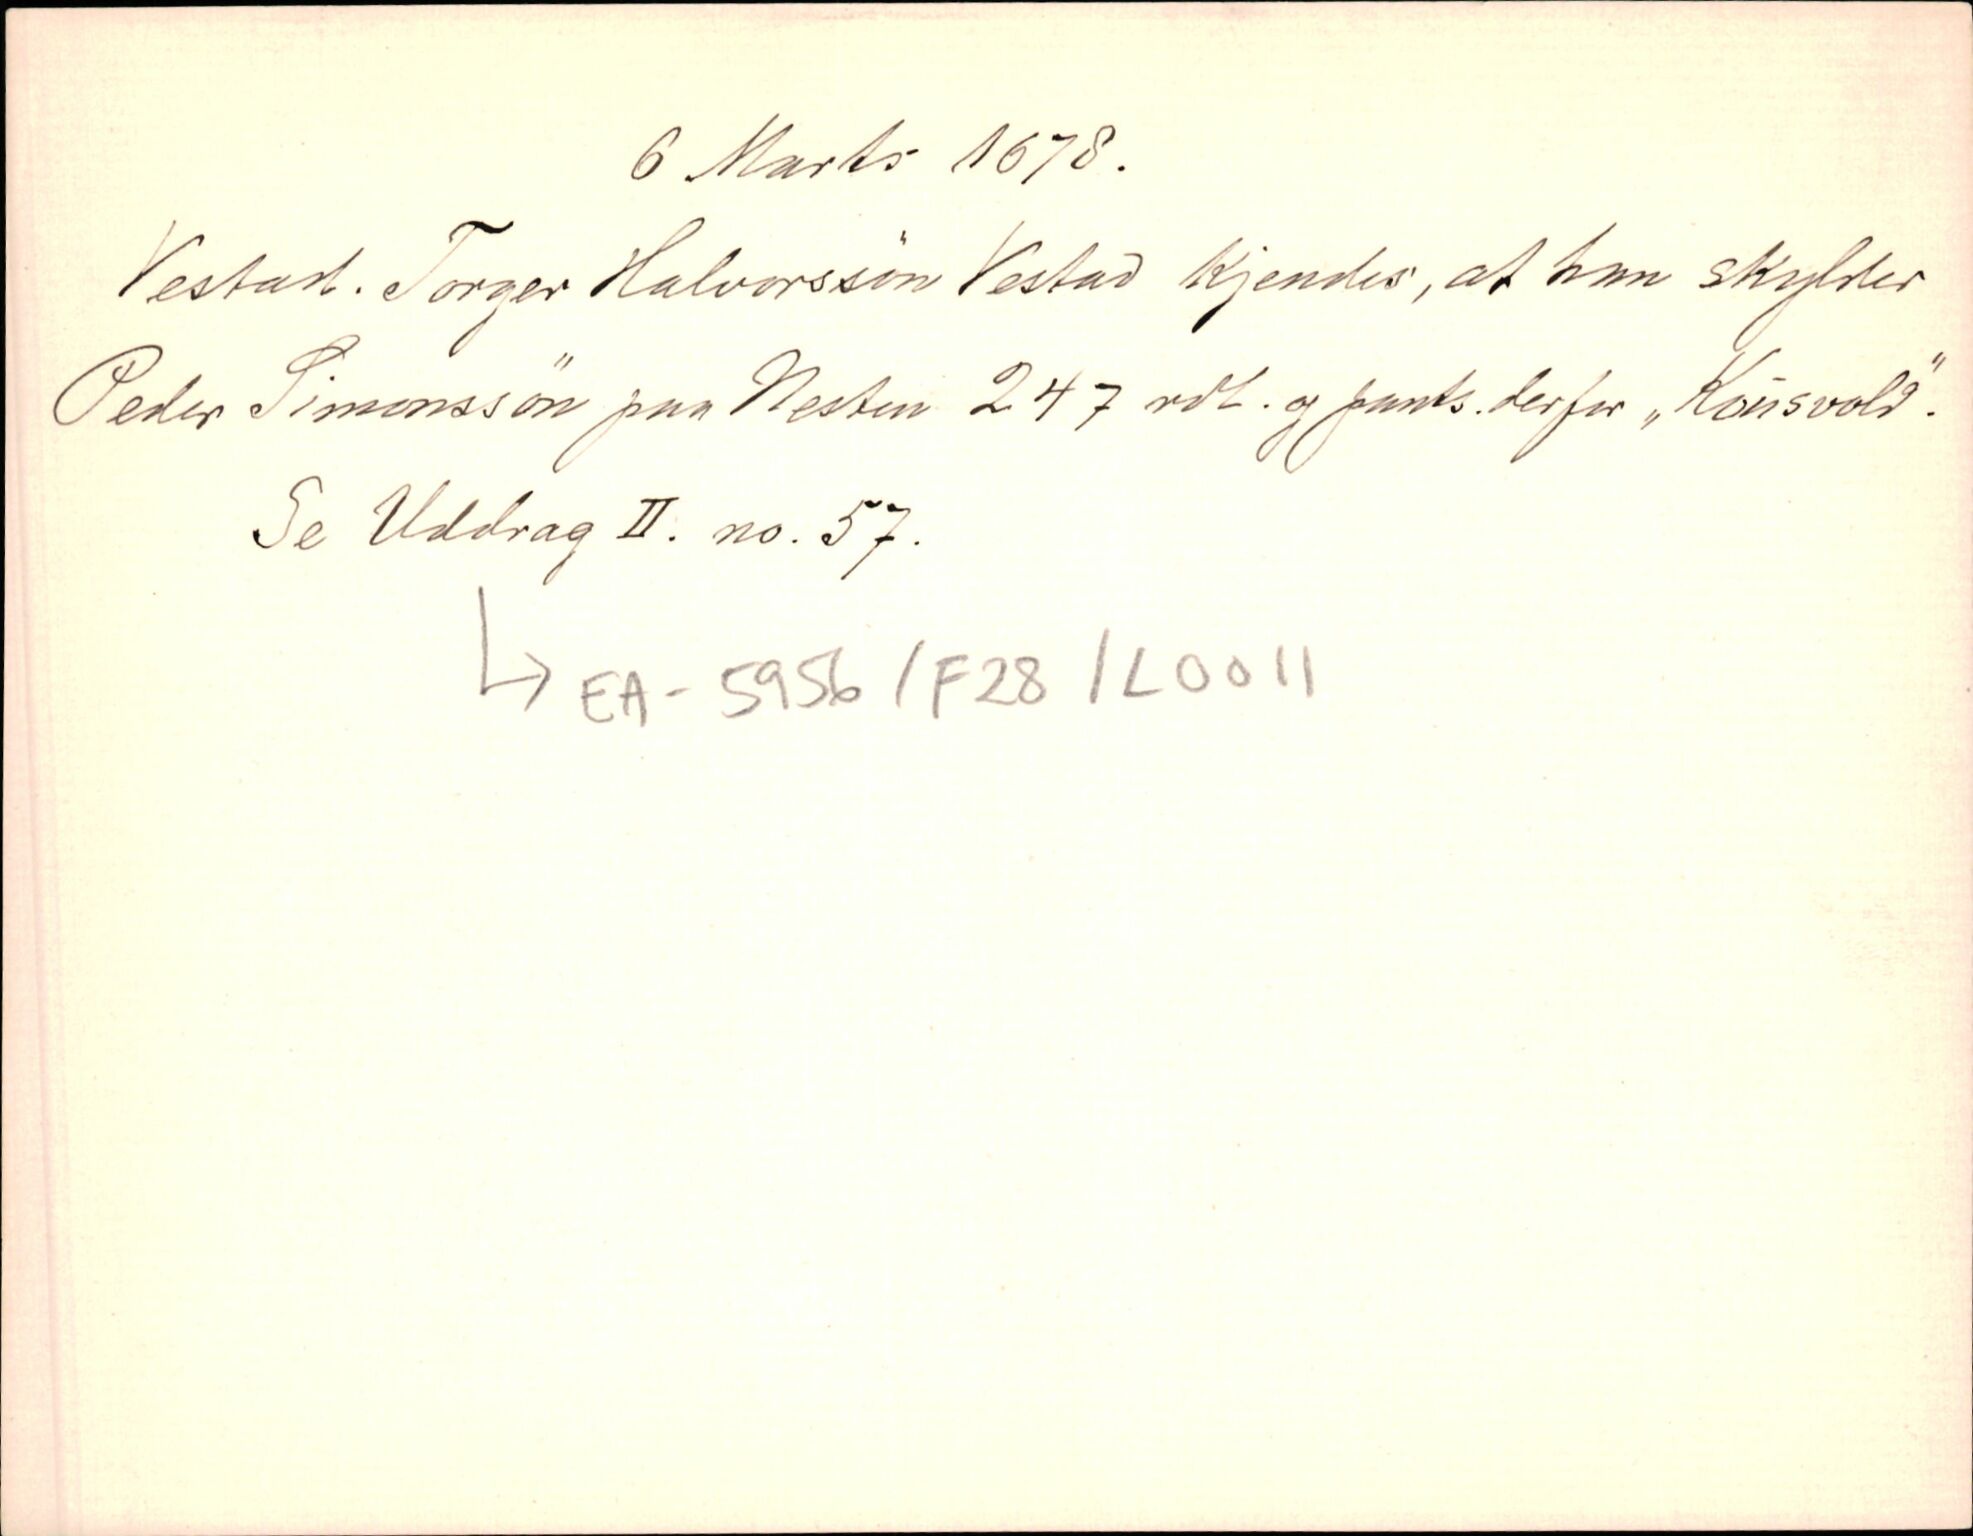 6 Marts 1678.
Vestad. Torger Halvorssön Vestad kjendes, at han skylder
Peder Simonssön paa Nesten 247 rdl. og pants. derfor „Kousvold“.
Se Uddrag II. no. 57.
↳ EA - 5956 / F28 / L0011